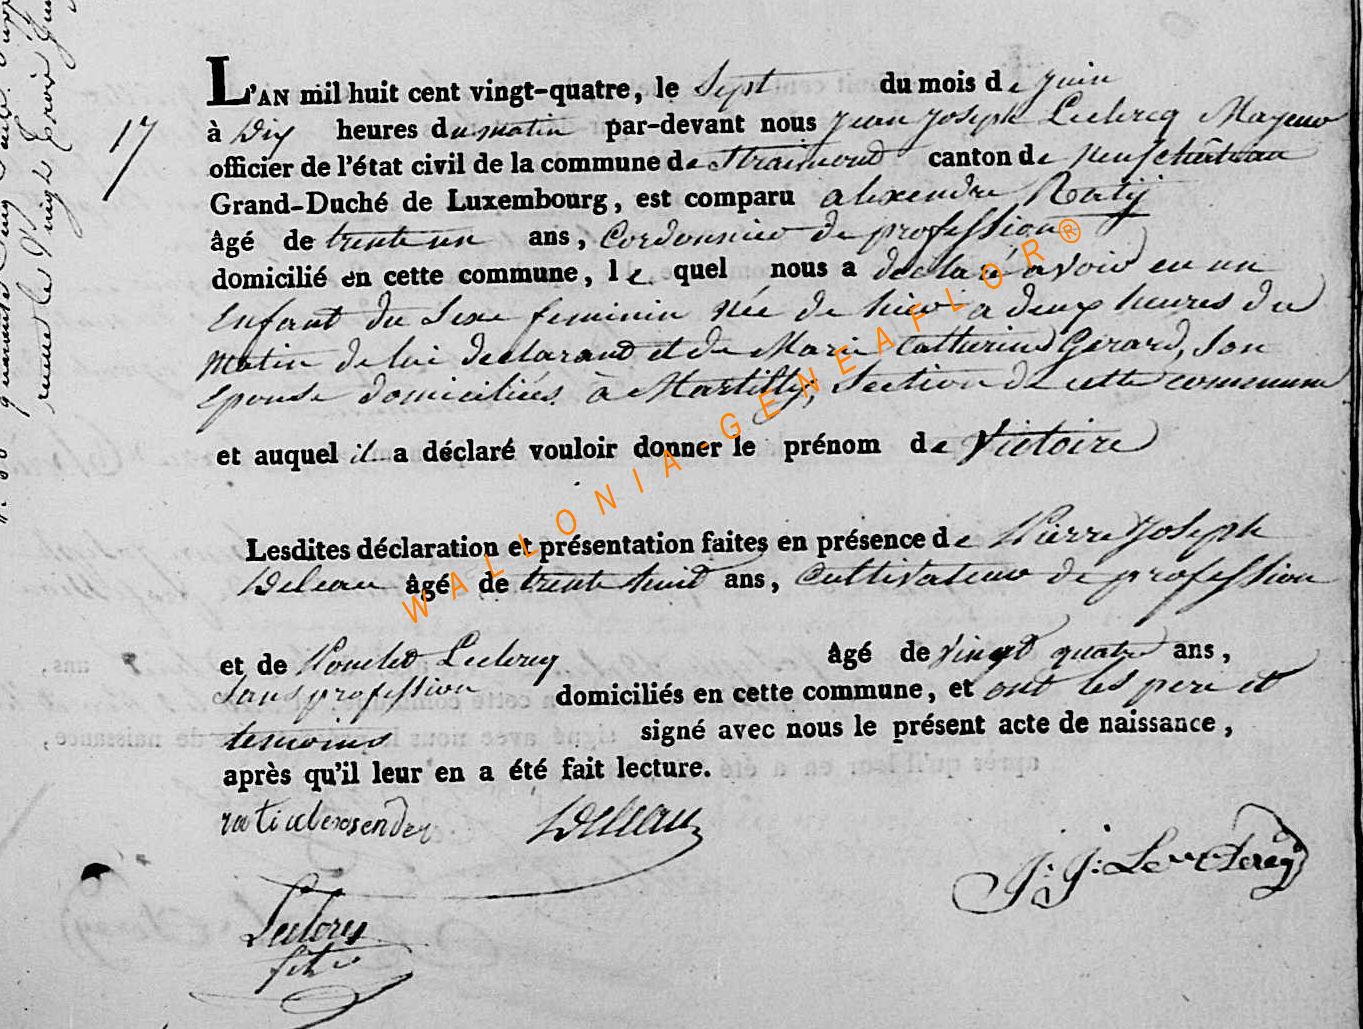 17
L'AN mil huit cent vingt-quatre, le Sept du mois de juin
à Dix heures du matin par-devant nous jean joseph Leclercq Mayeur
officier de l'état civil de la commune de Straimond canton de neufchâteau
Grand-Duché de Luxembourg, est comparu alexendre Ratij
âgé de trente un ans, Cordonnier de profession
domicilié en cette commune, le quel nous a déclaré avoir eu un
Enfant du Sexe feminin née de hier a deux heures du
matin de lui declarand et de Marie Catherine Gerard, Son
Epouse domiciliés à Martilly, Section de cette commune
et auquel il a déclaré vouloir donner le prénom de Victoire
Lesdites déclaration et présentation faites en présence de Pierre Joseph
Deleau âgé de trente huit ans, Cultivateur de profession
et de Leclercq âgé de vingt quatre ans,
Sans profession domiciliés en cette commune, et ont les pere et
temoins signé avec nous le présent acte de naissance,
après qu'il leur en a été fait lecture.
rati alexsender Deleau
J: J: Leclercq
WALLONIA-GENEAFLOR®